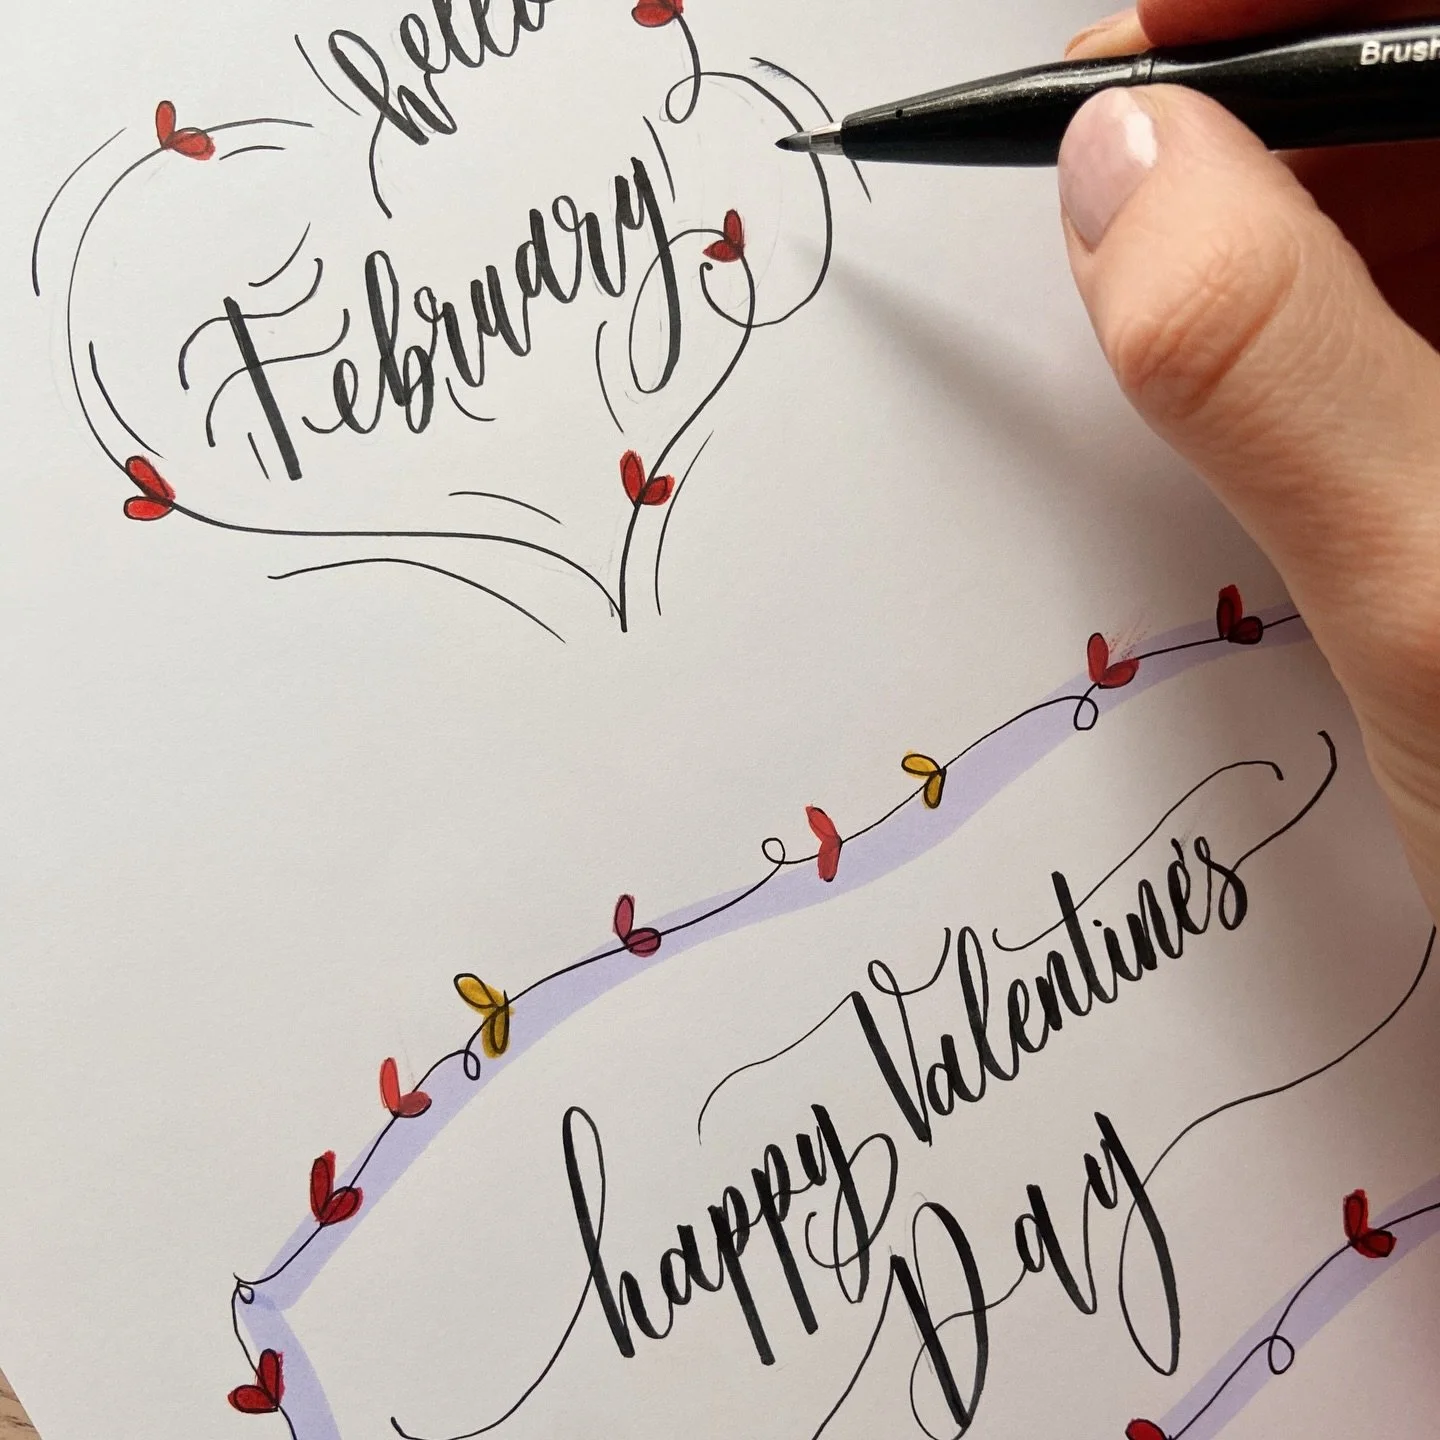 hello
February
Brush
happy Valentine's
Day